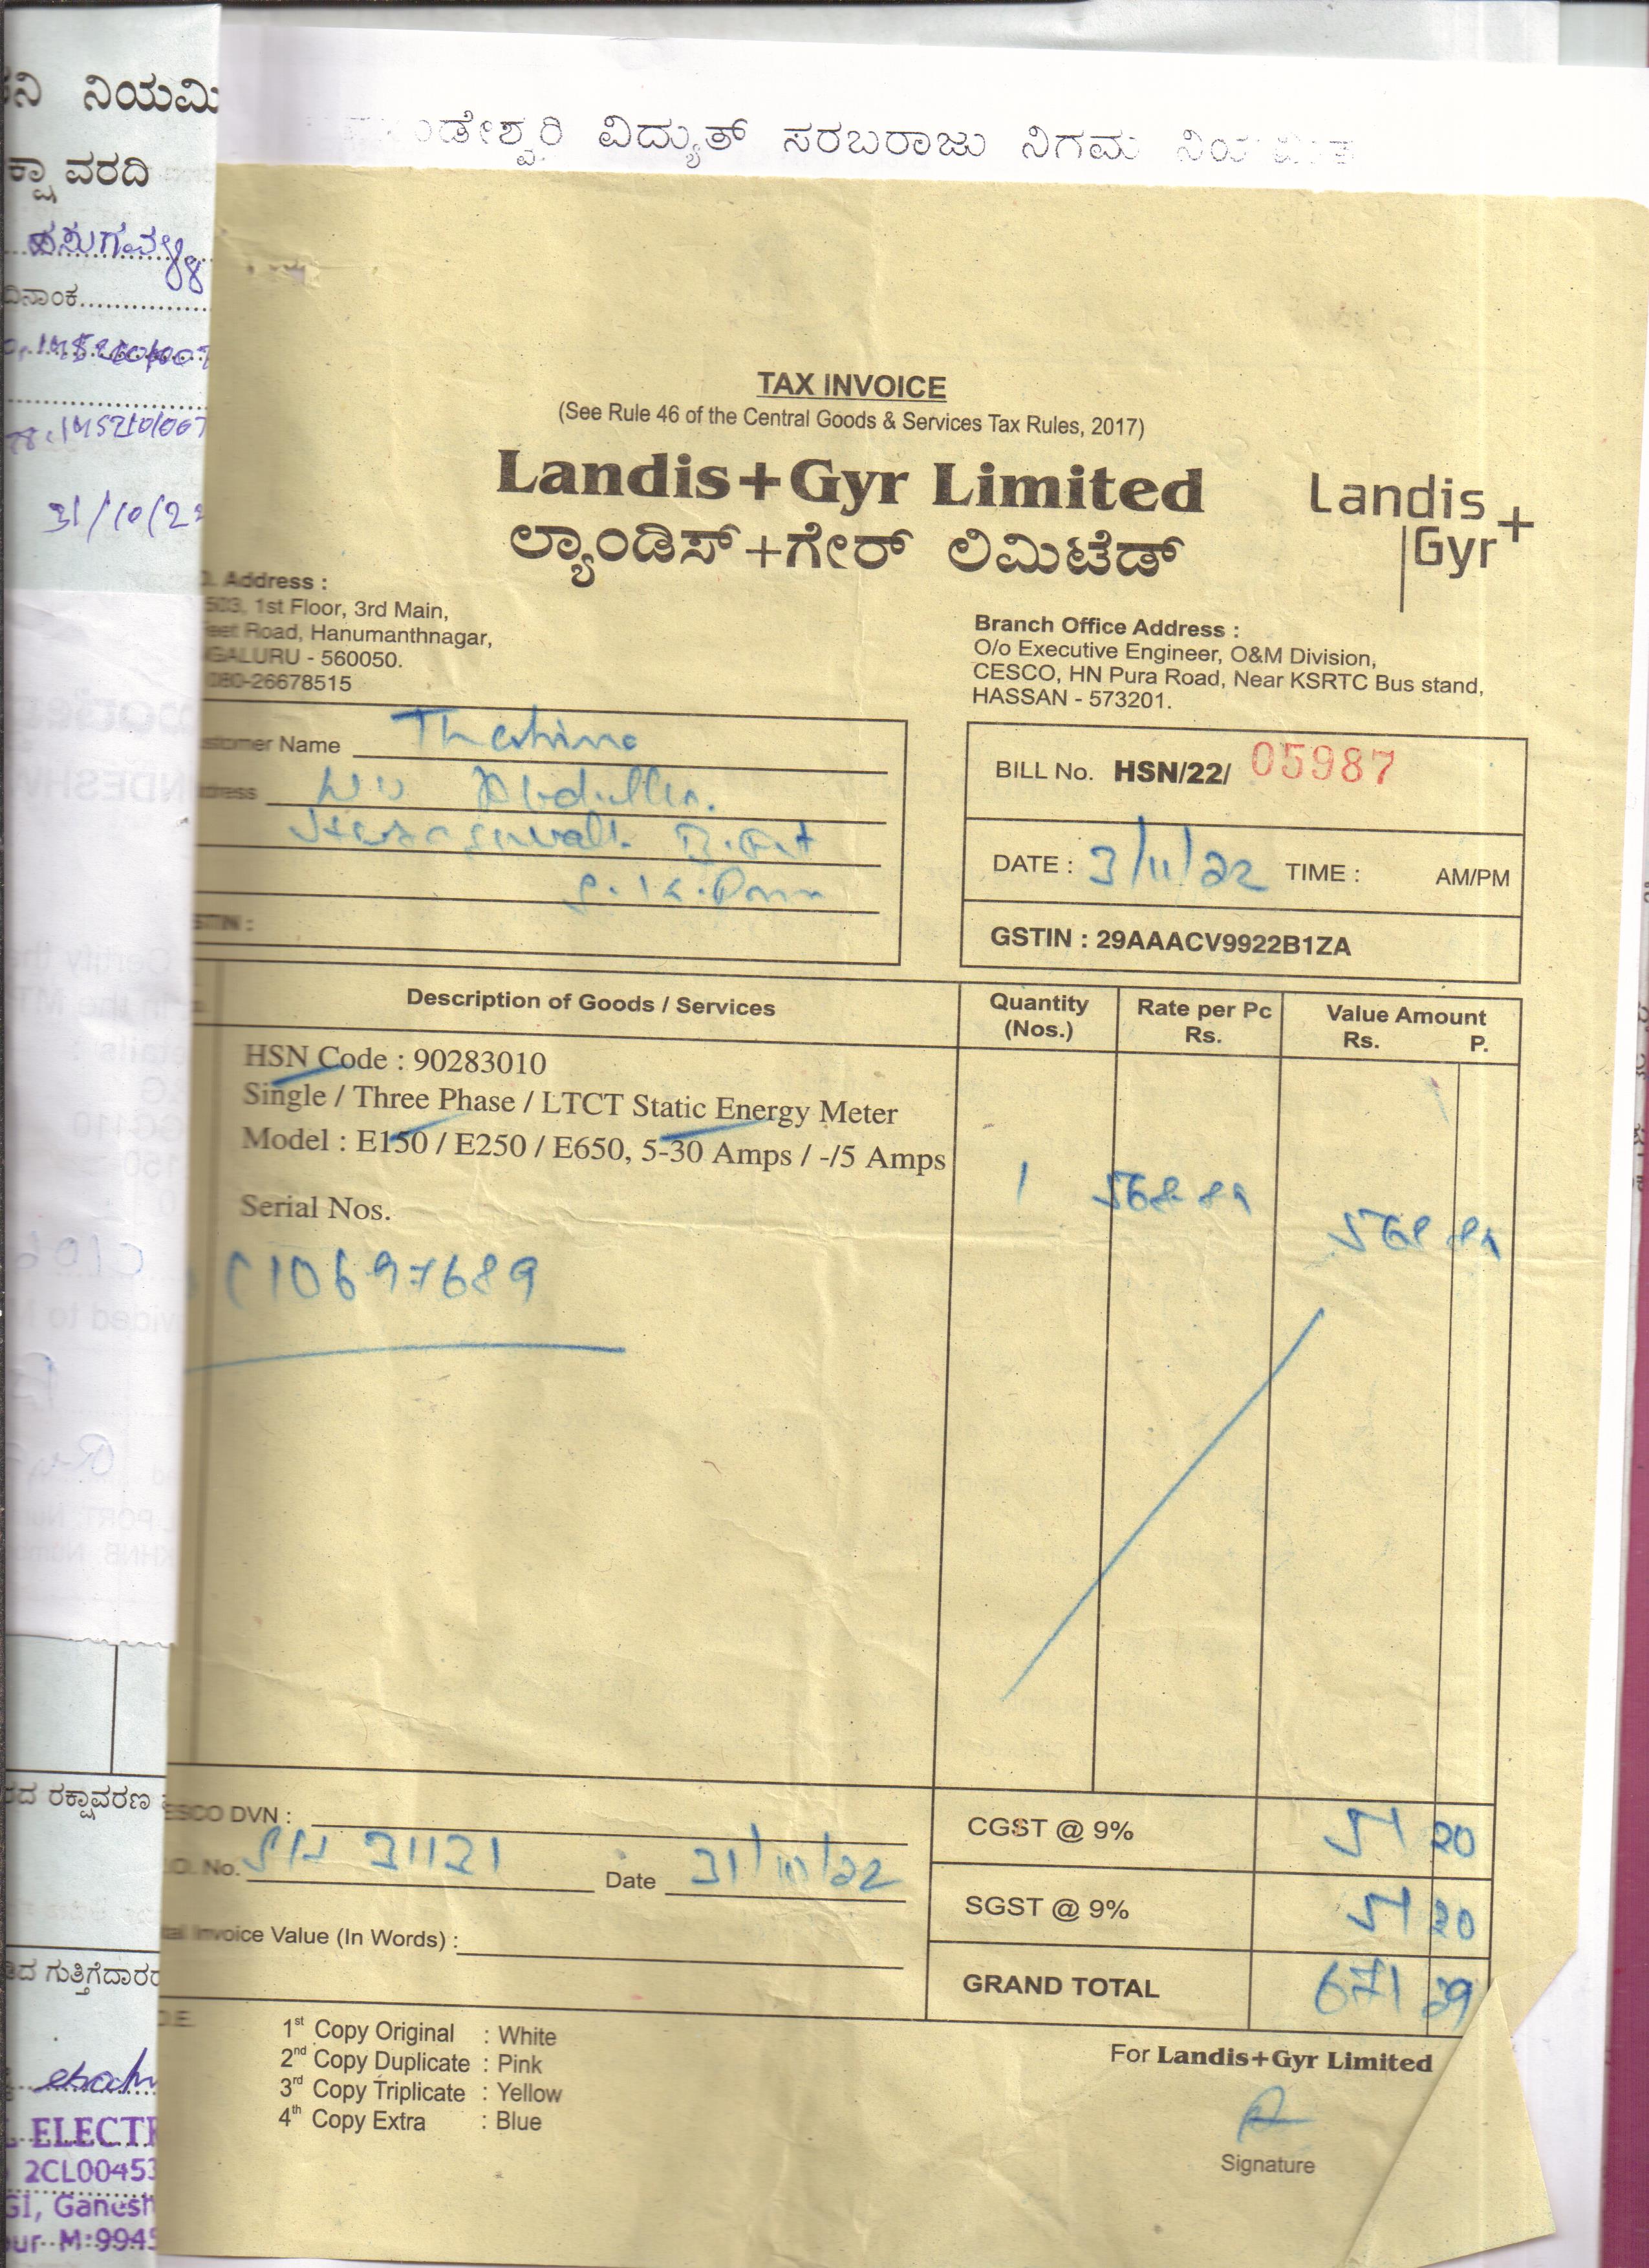 ನಿ ನಿಯಮಿ
ಕ್ಷಾ ವರದಿ
ದಿನಾಂಕ
31/10/22
ಡೇಶ್ವರಿ ವಿದ್ಯುತ್ ಸರಬರಾಜು ನಿಗಮ
TAX INVOICE
(See Rule 46 of the Central Goods & Services Tax Rules, 2017)
Landis+Gyr Limited
ಲ್ಯಾಂಡಿಸ್+ಗೇರ್ ಲಿಮಿಟೆಡ್
Landis+
Gyr
Address :
503, 1st Floor, 3rd Main,
eet Road, Hanumanthnagar,
GALURU - 560050.
080-26678515
Branch Office Address :
O/o Executive Engineer, O&M Division,
CESCO, HN Pura Road, Near KSRTC Bus stand,
HASSAN - 573201.
stomer Name
dress
STIN :
BILL No. HSN/22/ 05987
DATE : 3/11/22 TIME : AM/PM
GSTIN : 29AAACV9922B1ZA
Description of Goods / Services
Quantity (Nos.)
Rate per Pc Rs.
Value Amount
Rs. P.
HSN Code : 90283010
Single / Three Phase / LTCT Static Energy Meter
Model : E150 / E250 / E650, 5-30 Amps / -/5 Amps
1 568 89 568 89
Serial Nos.
C10697689
ESCO DVN :
.O. No. 31121 Date 31/10/22
tal Invoice Value (In Words) :
CGST @ 9% 51 20
SGST @ 9% 51 20
GRAND TOTAL 671 29
O.E.
1st Copy Original : White
2nd Copy Duplicate : Pink
3rd Copy Triplicate : Yellow
4th Copy Extra : Blue
For Landis+Gyr Limited
Signature
ದ ರಕ್ಷಾವರಣ
ದ ಗುತ್ತಿಗೆದಾರರ
ELECTR
2CL00453
GI, Ganesh
ur M:9945